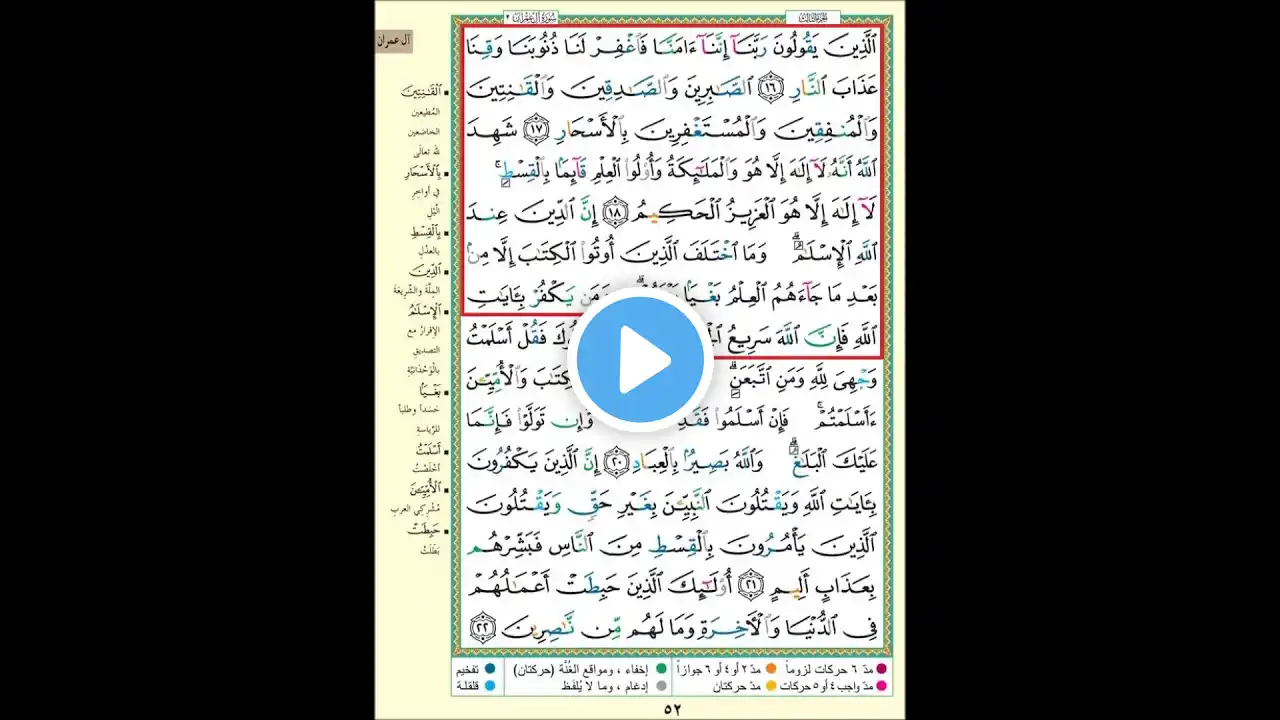 سورة آل عمران ٣
الجزء الثالث
آل عمران
ٱلَّذِينَ يَقُولُونَ رَبَّنَآ إِنَّنَآ ءَامَنَّا فَٱغْفِرْ لَنَا ذُنُوبَنَا وَقِنَا
عَذَابَ ٱلنَّارِ ١٦ ٱلصَّٰبِرِينَ وَٱلصَّٰدِقِينَ وَٱلْقَٰنِتِينَ
وَٱلْمُنفِقِينَ وَٱلْمُسْتَغْفِرِينَ بِٱلْأَسْحَارِ ١٧ شَهِدَ
ٱللَّهُ أَنَّهُۥ لَآ إِلَٰهَ إِلَّا هُوَ وَٱلْمَلَٰٓئِكَةُ وَأُو۟لُوا۟ ٱلْعِلْمِ قَآئِمًۢا بِٱلْقِسْطِ ۚ
لَآ إِلَٰهَ إِلَّا هُوَ ٱلْعَزِيزُ ٱلْحَكِيمُ ١٨ إِنَّ ٱلدِّينَ عِندَ
ٱللَّهِ ٱلْإِسْلَٰمُ ۗ وَمَا ٱخْتَلَفَ ٱلَّذِينَ أُوتُوا۟ ٱلْكِتَٰبَ إِلَّا مِنۢ
بَعْدِ مَا جَآءَهُمُ ٱلْعِلْمُ بَغْيًۢا وَمَن يَكْفُرْ بِـَٔايَٰتِ
ٱللَّهِ فَإِنَّ ٱللَّهَ سَرِيعُ فَقُلْ أَسْلَمْتُ
وَجْهِىَ لِلَّهِ وَمَنِ ٱتَّبَعَنِ ۗ وَٱلْأُمِّيِّـۧنَ
ءَأَسْلَمْتُمْ ۚ فَإِنْ أَسْلَمُوا۟ فَقَدِ وَّإِن تَوَلَّوْا۟ فَإِنَّمَا
عَلَيْكَ ٱلْبَلَٰغُ ۗ وَٱللَّهُ بَصِيرٌۢ بِٱلْعِبَادِ ٢٠ إِنَّ ٱلَّذِينَ يَكْفُرُونَ
بِـَٔايَٰتِ ٱللَّهِ وَيَقْتُلُونَ ٱلنَّبِيِّـۧنَ بِغَيْرِ حَقٍّ وَيَقْتُلُونَ
ٱلَّذِينَ يَأْمُرُونَ بِٱلْقِسْطِ مِنَ ٱلنَّاسِ فَبَشِّرْهُم
بِعَذَابٍ أَلِيمٍ ٢١ أُو۟لَٰٓئِكَ ٱلَّذِينَ حَبِطَتْ أَعْمَٰلُهُمْ
فِى ٱلدُّنْيَا وَٱلْءَاخِرَةِ وَمَا لَهُم مِّن نَّٰصِرِينَ ٢٢
ٱلْقَٰنِتِينَ
المُطيعين
الخاضعين
لله تعالى
بِٱلْأَسْحَارِ
في أواخر
اللّيل
بِٱلْقِسْطِ
بالعدْل
ٱلدِّينَ
الملّة والشّريعة
ٱلْإِسْلَٰمُ
الإقرارُ مع
التصديقِ
بالوَحْدانيّةِ
بَغْيًا
حَسَداً وطلباً
للرِّياسةِ
أَسْلَمْتُ
أخْلَصْتُ
ٱلْأُمِّيِّـۧنَ
مُشركي العربِ
حَبِطَتْ
بَطَلَتْ
مدّ ٦ حركات لزوماً
مدّ ٢ أو ٤ أو ٦ جوازاً
إخفاء ، ومواقع الغُنَّة (حركتان)
تفخيم
مدّ واجب ٤ أو ٥ حركات
مدّ حركتان
إدغام ، وما لا يُلفَظ
قلقلة
٥٢